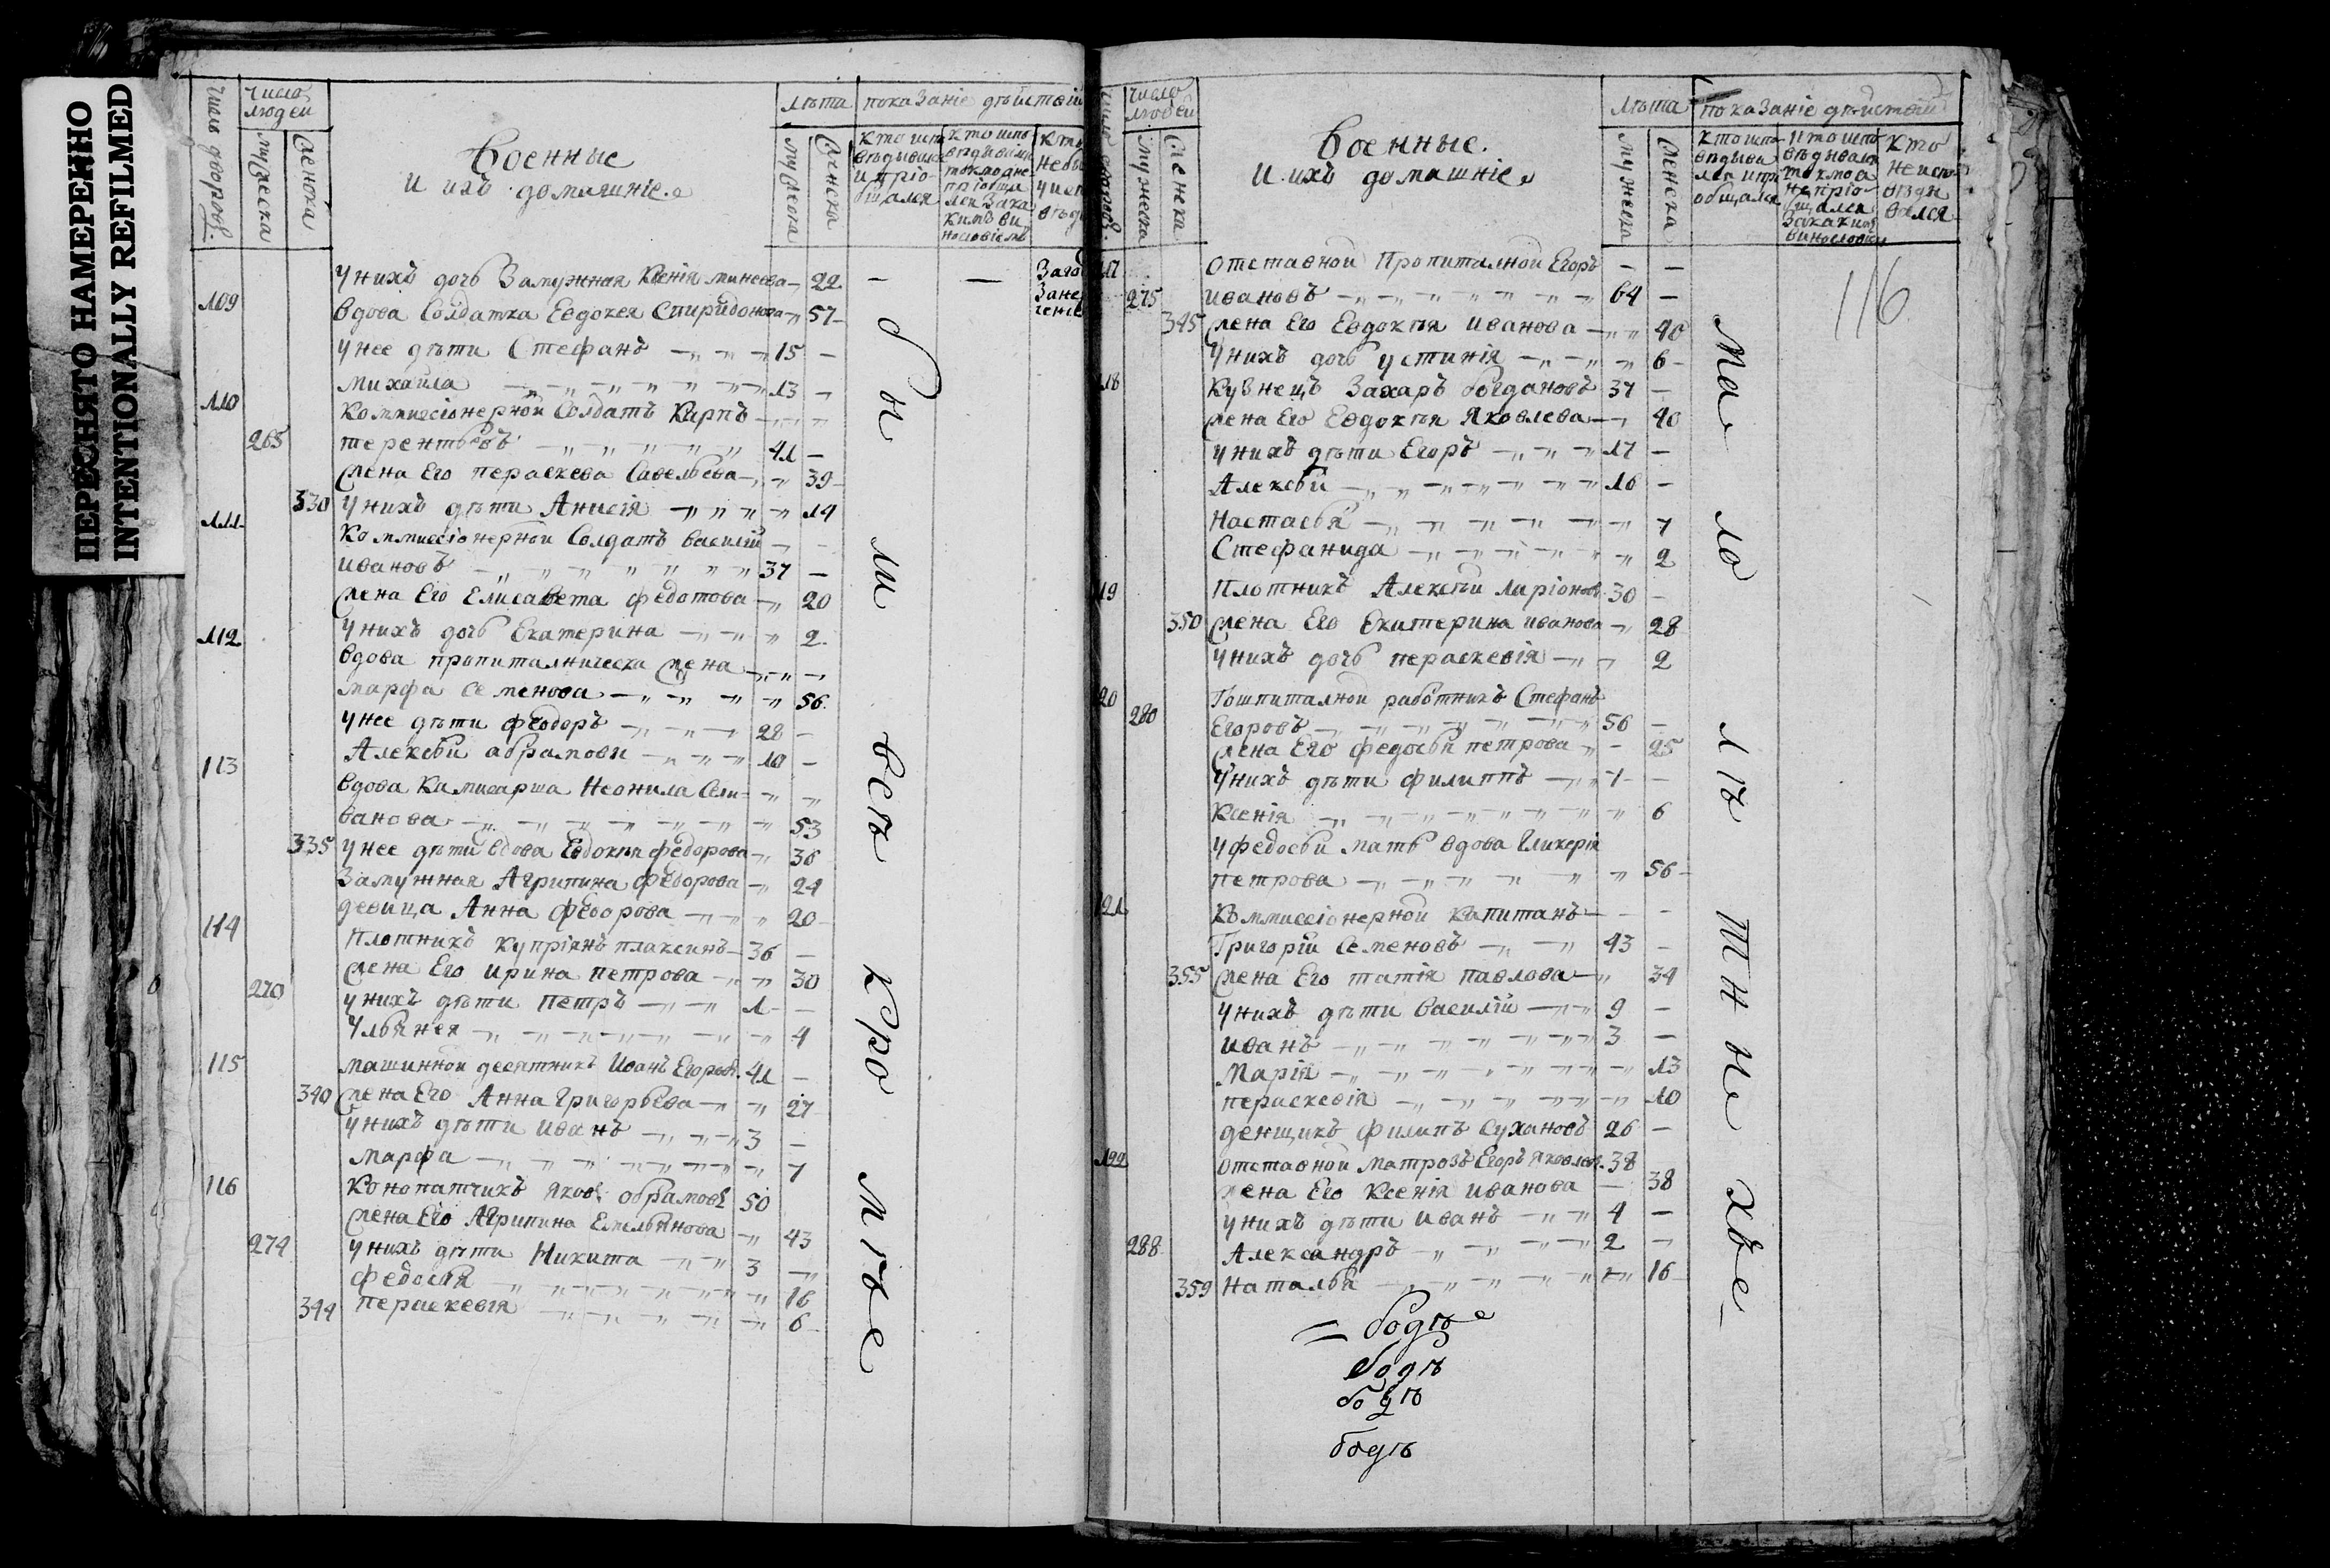 ПЕРЕСНЯТО НАМЕРЕННО
INTENTIONALLY REFILMED
число дворовъ.
число людей
мужеска
женска
Военные
и ихъ домашніе
лѣта
мужеска
женска
показаніе дѣйствій
у нихъ дочь замужная Ксенія минеева 22
109 вдова Солдатка Евдокея Спиридонова 57
у нее дѣти Стефанъ 15
михайла 13
110 Коммиссіонерной Солдатъ Карпъ
265 терентьевъ 41
жена Его параскева Савельева 39
330 у нихъ дѣти Анисія 14
111 Коммиссіонерной Солдатъ василій
ивановъ 37
жена Его Елисавета федотова 20
112 у нихъ дочь Екатерина 2
вдова пропиталническа жена
марфа семенова 56
у нее дѣти феодоръ 28
Алексѣй абрамови 10
113 вдова Камисарша Неонила Сели-
ванова 53
335 у нее дѣти вдова Евдокѣя федорова 36
Замужная Агрипина федорова 24
девица Анна федорова 20
114 Плотникъ купріянъ плаксинъ 36
жена Его ирина петрова 30
270 у нихъ дѣти петръ 1
Ульянея 4
115 машинной десятникъ Иванъ Егоровъ 41
340 жена Его Анна Григорьева 27
у нихъ дѣти иванъ 3
марфа 7
116 Конопатчикъ Яковъ абрамовъ 50
жена Его Агрипина Емельянова 43
274 у нихъ дѣти Никита 3
федосья 16
344 параскевія 6
бы ли всѣ кро мѣ
число людей
мужеска
женска
Военные.
и ихъ домашніе
лѣта
мужеска
женска
показаніе дѣйствій
кто исповѣдывался и пріобщался
кто не исповѣдывался
116
117 отставной Пропиталной Егоръ
275 ивановъ 64
345 жена Его Евдокѣя иванова 40
у нихъ дочь устинія 6
118 Кузнецъ Захаръ богдановъ 37
жена Его Евдокѣя Яковлева 40
у нихъ дѣти Егоръ 17
Алексѣй 10
Настасья 7
Стефанида 2
119 Плотникъ Алексѣй Ларіоновъ 30
350 жена Его Екатерина иванова 28
у нихъ дочь параскевія 2
120 Гошпиталной работникъ Стефанъ
280 Егоровъ 56
жена Его федосья петрова 25
у нихъ дѣти филиппъ 1
Ксенія 6
у федосьи мать вдова Гликерія
петрова 56
121 Коммиссіонерной Капитанъ
Григорій Семеновъ 43
355 жена Его татія павлова 34
у нихъ дѣти василій 9
иванъ 3
Марія 13
параскевія 10
денщикъ филипъ Сухановъ 26
122 отставной матрозъ Егоръ Яковлевъ 38
жена Его Ксенія иванова 38
у нихъ дѣти иванъ 4
288 Александръ 2
359 Наталья 16
ма ло лѣ тн ы хъ